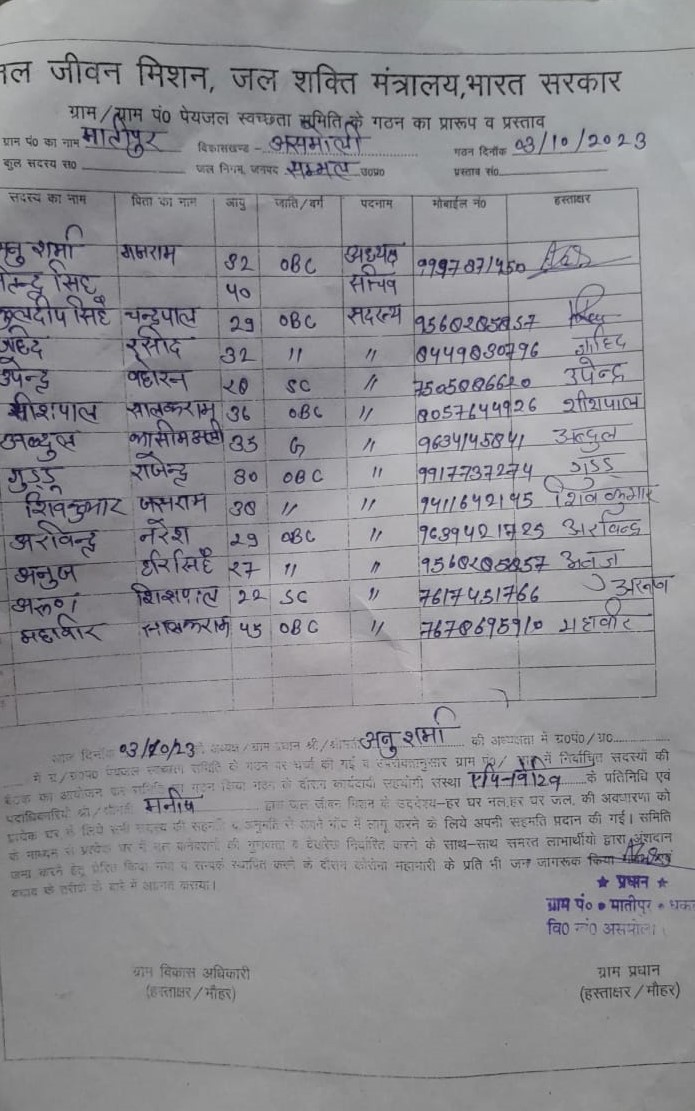 जल जीवन मिशन, जल शक्ति मंत्रालय,भारत सरकार
ग्राम/ग्राम पं० पेयजल स्वच्छता समिति के गठन का प्रारूप व प्रस्ताव
ग्राम पं० का नाम मातीपुर विकासखण्ड - असमोली गठन दिनांक 03/10/2023
कुल सदस्य स० जल निगम, जनपद सम्भल उ०प्र० प्रस्ताव सं०
सदस्य का नाम पिता का नाम आयु जाति/वर्ग पदनाम मोबाईल नं० हस्ताक्षर
अनु शर्मा गजराम 32 OBC अध्यक्ष
सिंह 40 सचिव
कुलदीप सिंह चन्द्रपाल 29 OBC सदस्य
जाहिद रसीद 32 11 11 8449830796 जाहिद
उपेन्द्र 28 SC 11 उपेन्द्र
शीशपाल सालकराम 36 OBC 11 8057644926 शीशपाल
अब्दुल कासीम अली 35 G 11 9634145841 अब्दुल
गुड्डू राजेन्द्र 30 OBC 11 9917737274 गुड्डू
शिवकुमार जसराम 38 11 11 9411642145 शिव कुमार
अरविन्द्र नरेश 29 OBC 11 9639421725 अरविन्द्र
अनुज हरि सिंह 27 11 11
अरुण शिशपाल 22 SC 11 7617451766
महावीर सालकराम 45 OBC 11 7678695910 महावीर
आज दिनांक 03/10/23 अध्यक्ष/ग्राम प्रधान श्री/श्रीमती अनु शर्मा की अध्यक्षता में ग्र०पं०/ग्र०
में ग्र/ग्र०प० पेयजल स्वच्छता समिति के गठन पर चर्चा की गई व उपरोक्तानुसार ग्राम पं०/ में निर्वाचित सदस्यों की
बैठक का आयोजन कर समिति का गठन किया गया गठन के दौरान कार्यदायी सहयोगी संस्था के प्रतिनिधि एवं
पदाधिकारियों श्री/श्रीमती मनीष द्वारा जल जीवन मिशन के उद्देश्य-हर घर नल,हर घर जल, की अवधारणा को
प्रत्येक घर में लिये सभी सदस्य की सहमति व अनुमति से अपने गाँव में लागू करने के लिये अपनी सहमति प्रदान की गई। समिति
के माध्यम से प्रत्येक घर में जल कनेक्शनों की गुणवत्ता व देखरेख निर्धारित करने के साथ-साथ समस्त लाभार्थीयो द्वारा अंशदान
जमा करने हेतु प्रेरित किया गया व सम्पर्क स्थापित करने के दौरान कोरोना महामारी के प्रति भी जन जागरूक किया
बचाव के तरीको के बारे में अवगत कराया।
★ प्रधान ★
ग्राम पं० ● मातीपुर
वि० असमोली
ग्राम विकास अधिकारी ग्राम प्रधान
(हस्ताक्षर/मौहर) (हस्ताक्षर/मौहर)